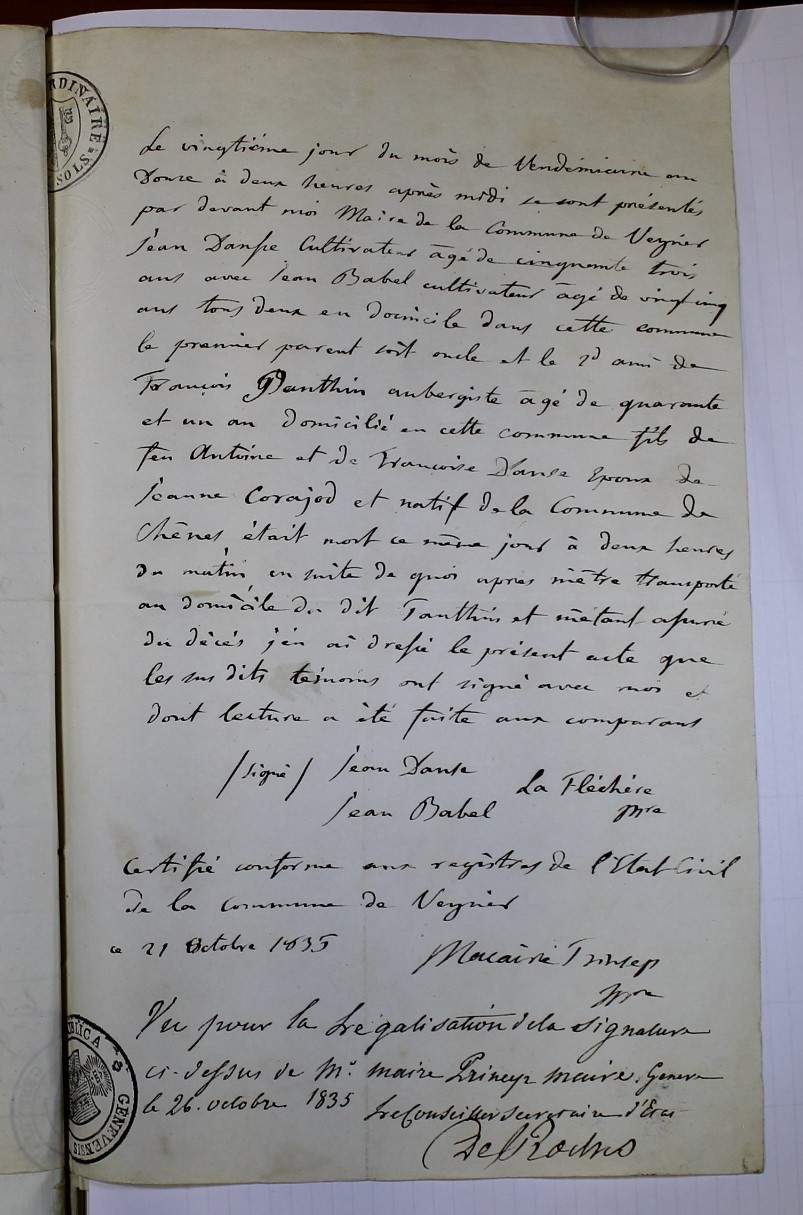 RDINAIRE
SOLS
Le vingtiéme jour du mois de Vendémiaire an
Douze à deux heures aprés midi se sont présentés
par devant moi Maire de la Commune de Veyrier
Jean Danse Cultivateur âgé de cinquante trois
ans avec Jean Babel cultivateur âgé de vingt cinq
ans tous deux en domicile dans cette commune
le premier parent soit oncle et le 2d ami de
François Panthin aubergiste âgé de quarante
et un an domicilié en cette commune fils de
feu Antoine et de Françoise Danse Epoux de
Jeanne Corajod et natif de la Commune de
Chênes était mort ce même jour à deux heures
du matin en suite de quoi apres m'être transporté
au domicile du dit Panthin et m'étant assuré
du décés j'en ai dressé le présent acte que
les sus dits témoins ont signé avec moi et
dont lecture a été faite aux comparans
/ signé / Jean Danse La Fléchére
Jean Babel
Certifié conforme aux registres de l'Etat Civil
de la commune de Veyrier
ce 21 Octobre 1835
Macaire Prinsep
Vu pour la Légalisation de la signature
ci-dessus de Mr. maire. Geneve
le 26. octobre 1835 Le Conseiller Secretaire d'Etat
De Roches
GENEVENSIS